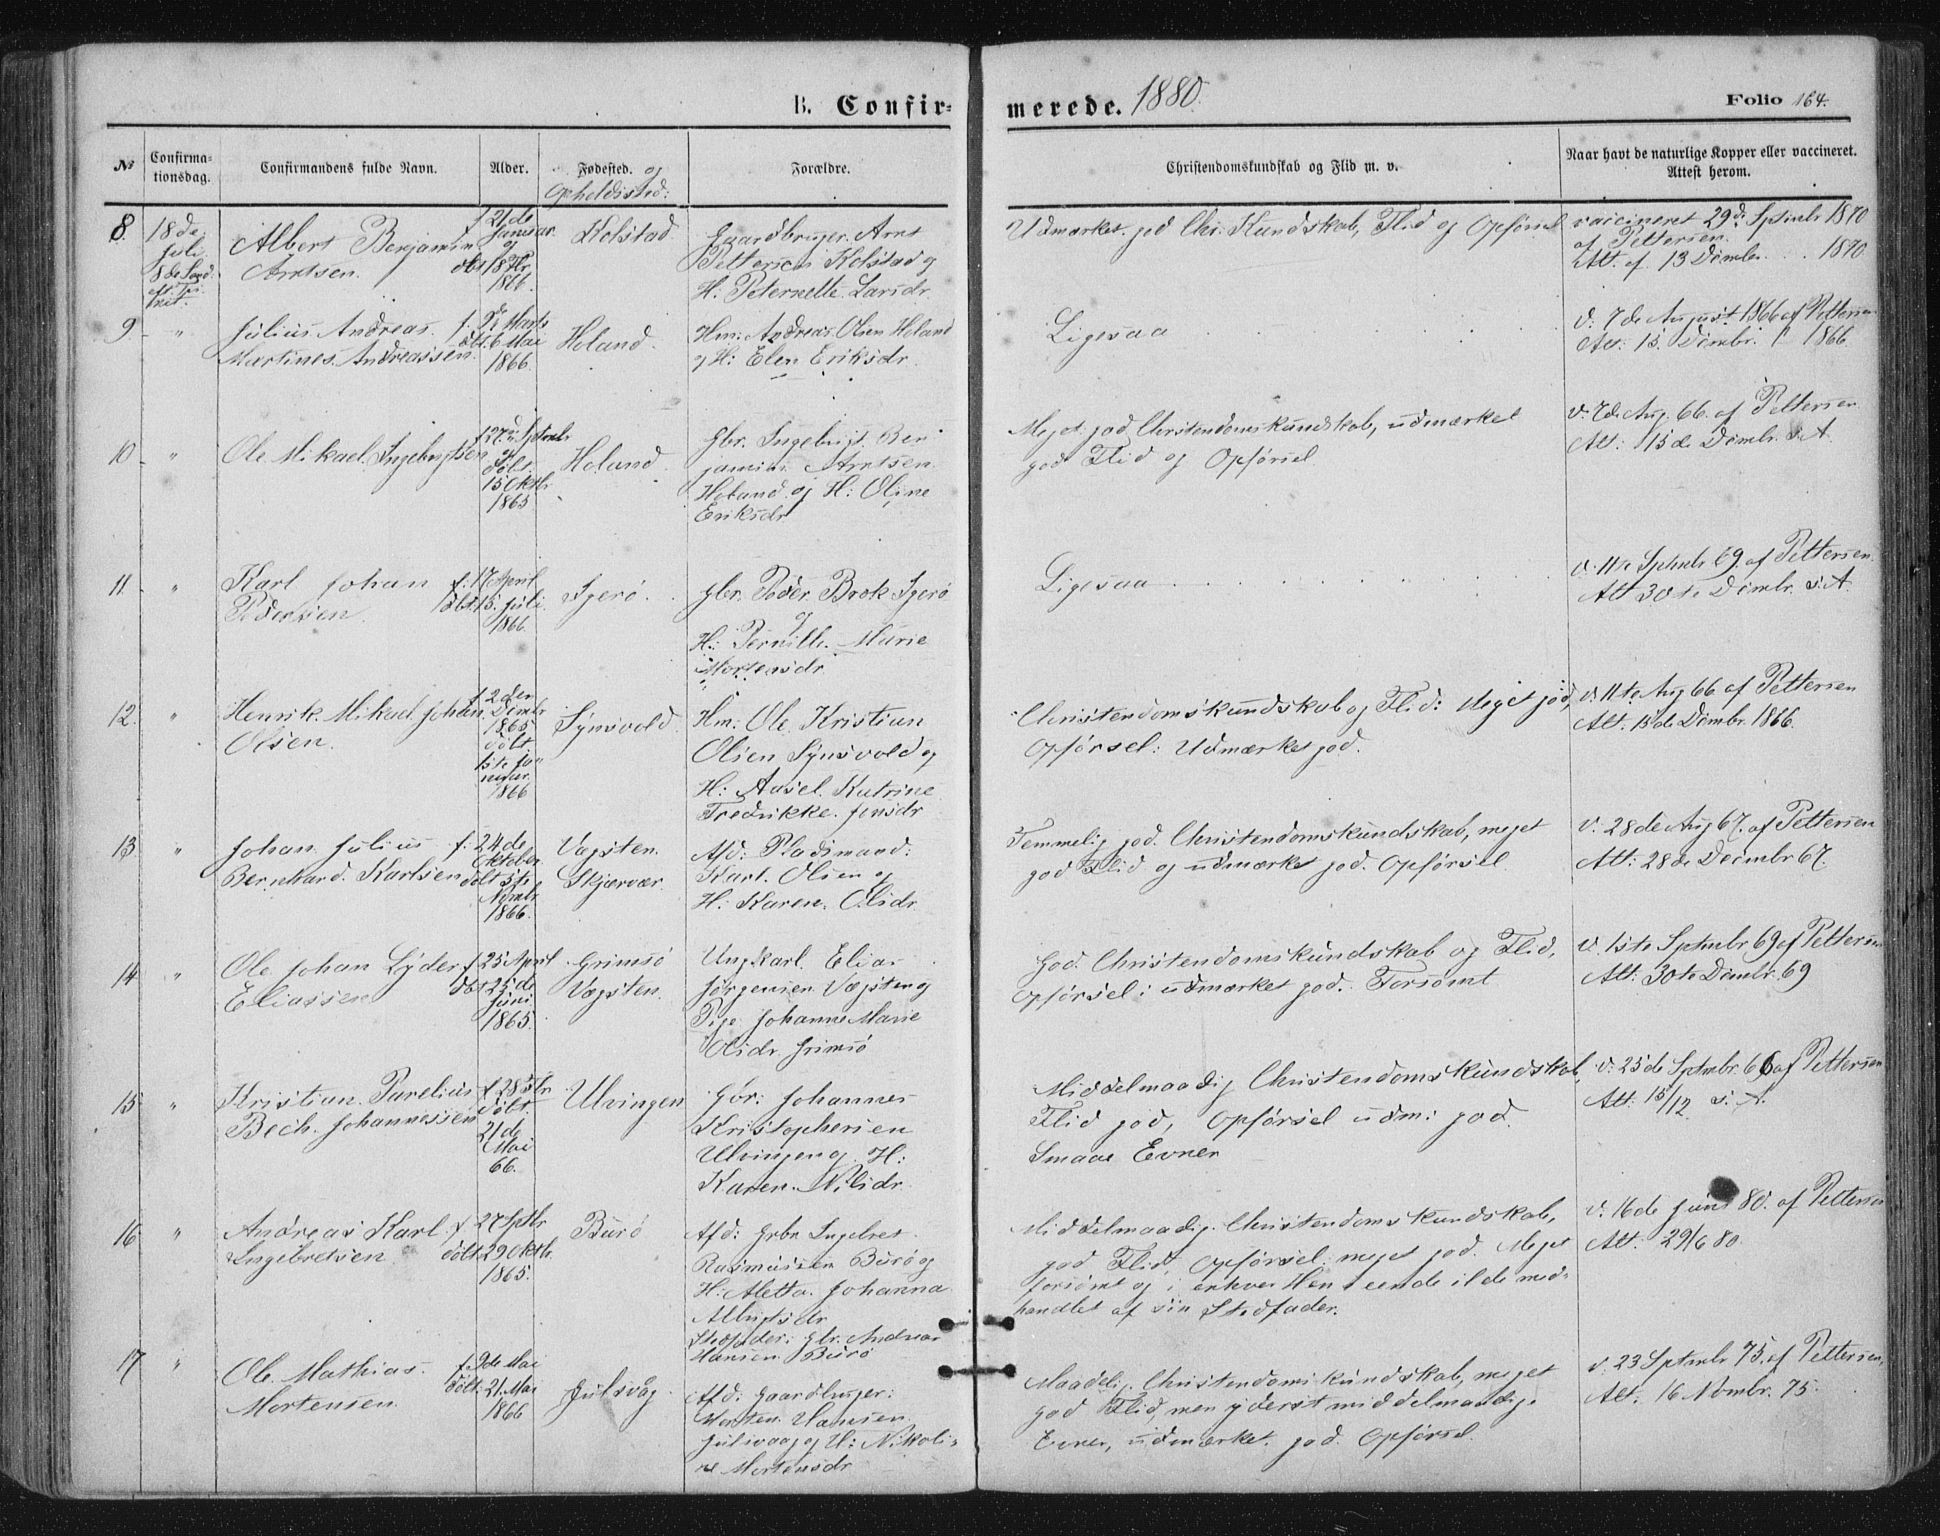 B. Confir-
merede. 1880.
Folio 164.
No
Confirma-
tionsdag.
Confirmandens fulde Navn.
Alder.
Fødested. og
Opholdssted:
Forældre.
Christendomskundskab og Flid m. v.
Naar havt de naturlige Kopper eller vaccineret.
Attest herom.
8.
18de
Juli
8de Sønd.
eft. Tri-
nit.
Albert Benjamin
Arntsen.
f 21de
Januar
og
døbt 18 Fbr.
1866.
Kolstad
Gaardbruger Arnt
Pettersen Kolstad og
H. Peternelle Larsdr.
Udmærket god Chr. Kundskab, Flid og Opførsel
vaccineret 29de Septembr 1870
af Pettersen.
Att. af 13 Decembr. 1870
9 "
Julius Andreas
Martines Andreassen
f. 9de Marts
døbt 6 Mai
1866.
Høland.
Hm: Andreas Olsen Høland
og H: Elen Eriksdr.
Ligesaa
v: 7de August 1866 af Pettersen
Att: 15. Decembr. 1866.
10 "
Ole Mikael Ingebrigtsen
f 27de Septembr
og
døbt
15 Oktbr.
1865
Høland.
Gbr. Ingebrigt Ben
jamin Arntsen
Høland og H: Oline
Eriksdr
Meget god Christendomskundskab, udmærket
god Flid og Opførsel
v. 7de Aug. 66. af Pettersen
Att: 15de Decmbr. s: A.
11. "
Karl Johan
Pedersen
f. 17 April
døbt 15. Juli
1866.
Igerø.
Gbr. Peder Brok Igerø
og
H: Pernille Marie
Mortensdr
Ligesaa
v. 11te Septmbr 69. af Pettersen.
Att 30te Decmbr. s. A
12. "
Henrik Mikael Johan
Olsen.
f. 2den
Decmbr
1865
døbt
1ste Ja-
nuar.
1866
Synsvold.
Hm. Ole Kristian
Olsen Synsvold og
H: Axsel Katrine
Fredrikke Jensdr
Christendomskundskab og Flid: Meget god,
Opførsel: Udmærket god.
v. 11te Aug 66 af Pettersen
Att. 15de Decmbr. 1866.
13 "
Johan Julius
Bernhard Karlsen
f. 24de
Oktober
døbt 5te
Novmbr
1866.
Vægsten
Skjærvær.
Afd: Pladsmand:
Karl Olsen og
H. Karen Olsdr.
Temmelig god Christendomskundskab, meget
god Flid og udmærket god Opførsel
v. 28de Aug 67. af Pettersen
Att: 28de Decmbr 67.
14 "
Ole Johan Lyder
Eliassen
f 25 April
døbt 25de
Juni
1865.
Grimsø
Vægsten.
Ungkarl Elias
Jørgensen Vægsten og
Pige Johanne Marie
Olsdr Grimsø
God Christendomskundskab og Flid,
Opførsel: udmærket god. Forsømt
v. 1ste Septmbr 69 af Pettersen
Att: 30te Decmbr. 69
15 "
Kristian Parelius
Bech Johannessen
døbt
21de
Mai
66.
Ulvingen
Gbr: Johannes
Kristophersen
Ulvingen og H:
Karen Nilsdr.
Middelmaadig Christendomskundskab,
Flid god, Opførsel udm: god.
Smaae Evner
v. 25de Septmbr. 66 af Pettersen
Att: 15/12 s. A.
16 "
Andreas Karl
Ingebretsen
f. 27 Sptbr
døbt 29 Oktbr.
1865.
Burø
Afd: Grbr Ingebret
Rasmussen Burø og
H: Aletta Johanna
Albrigtsdr
Stedfader: Gbr. Andreas
Hansen Burø
Middelmaadig Christendomskundskab,
god Flid, Opførsel meget god. Meget
forsømt og i enhver Henseende ilde med-
handlet af sin Stedfader.
v. 16de Juni 80. af Pettersen
Att: 29/6 80.
17 "
Ole Mathias
Mortensen
f. 9de Mai
døbt 21. Mai
1866
Julsvåg
Afd: Gaardbruger:
Morten Hansen
Julsvaag og H: Nikoli-
ne Mortensdr
Maadelig Christendomskundskab, meget
god Flid, men yderst middelmaadige
Evner, udmærket god Opførsel.
v. 23 Septmbr 75. af Pettersen,
Att: 16 Novmbr. 75.